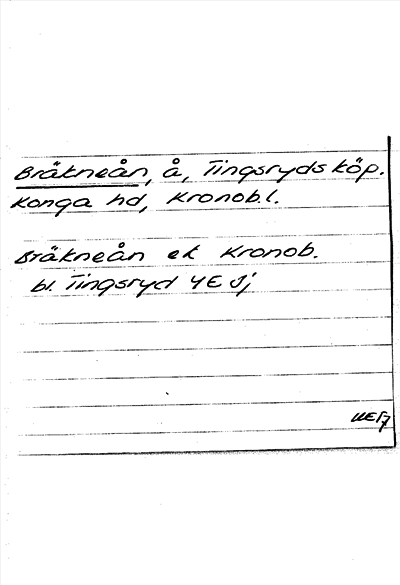 Bräkneån, å, Tingsryds köp.
Konga hd, Kronob.l.
Bräkneån ek Kronob.
bl. Tingsryd 4E Sj